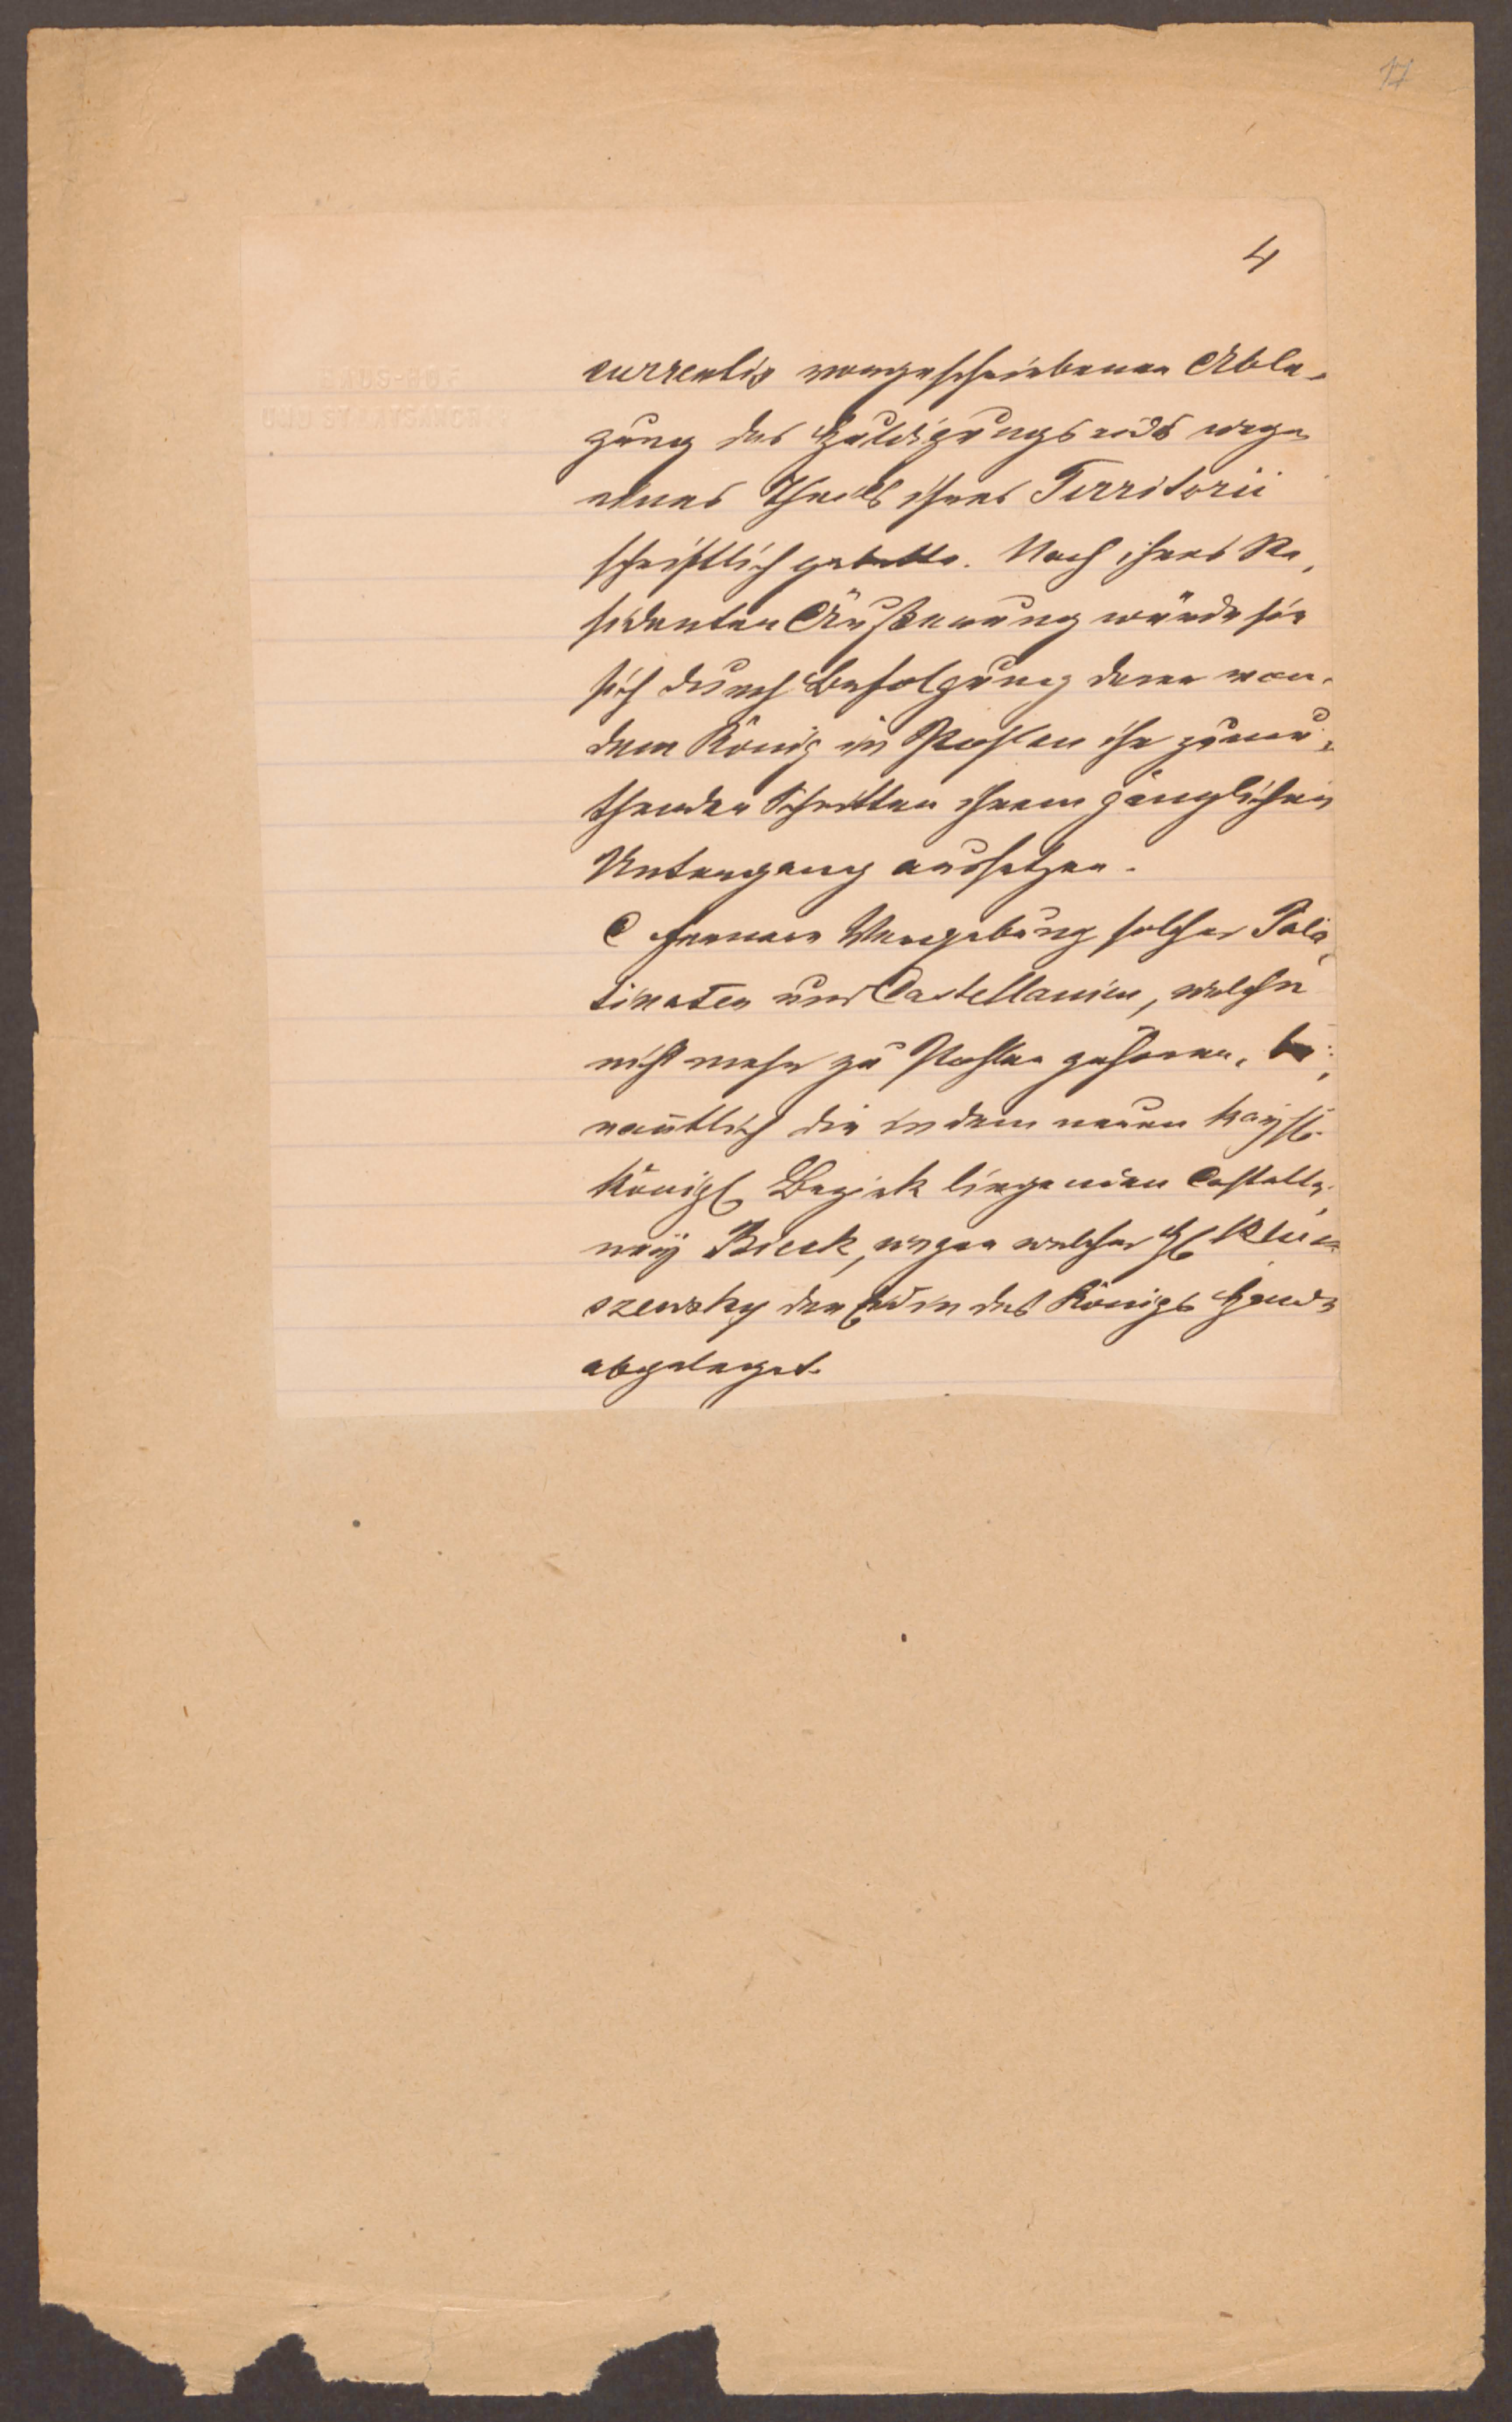 17
4
currentis vorgeschriebenen Able-
gung des Huldigungseids wegen
eines Theils ihres Territorii
schriftlich gebetten. Nach ihres Re-
sidenten Äußerung würde sie
sich durch Befolgung deren von
dem König in Pohlen ihr zumu-
thenden Schritten ihrem gänzlichen
Untergang aussetzen.
C fernere Vergebung solcher Pala-
tinaten und Castellanien, welche
nicht mehr zu Pohlen gehören, be-
nanntlich die in dem neuen Kaysl.
Königl. Bezirk liegenden Castella-
ney Bieck, wegen welcher H.
szewsky den Eid in des Königs Hände
abgeleget.